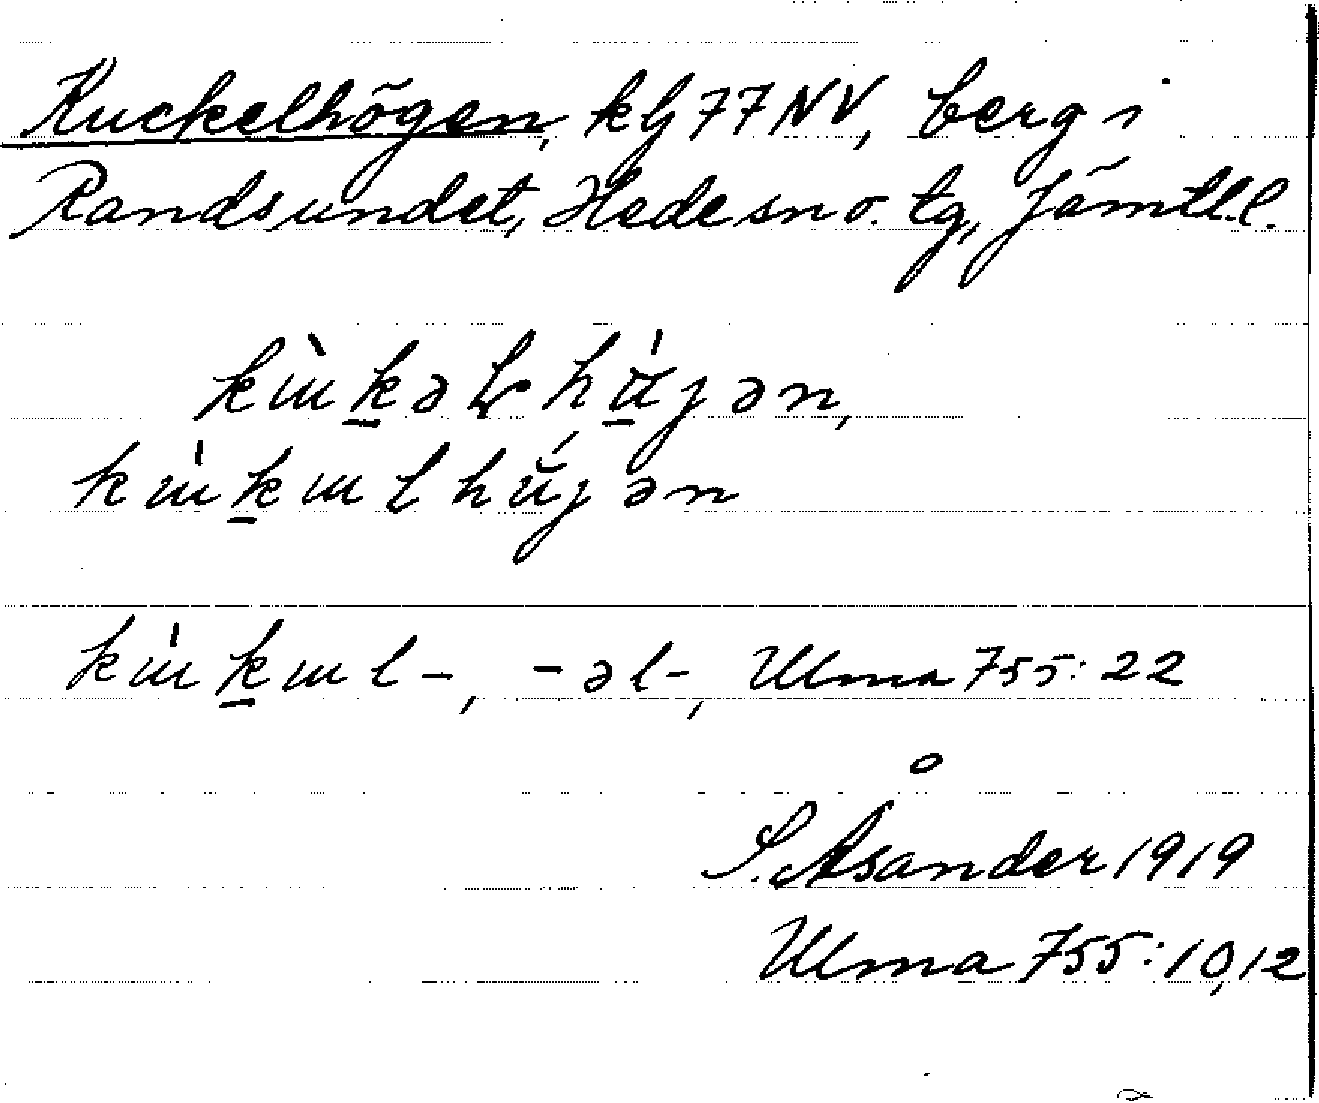 Kuckelhögen, kbj 77 NV, berg i
Randsundet, Hedesn o. tg, Jämtl.l.
kɯ̀k̲əl-
kɯ̀k̲ɯlhŭ́jən
kɯ̀k̲ɯl-, -əl-, Ulma 755:22
S. Åsander 1919
Ulma 755:10,12